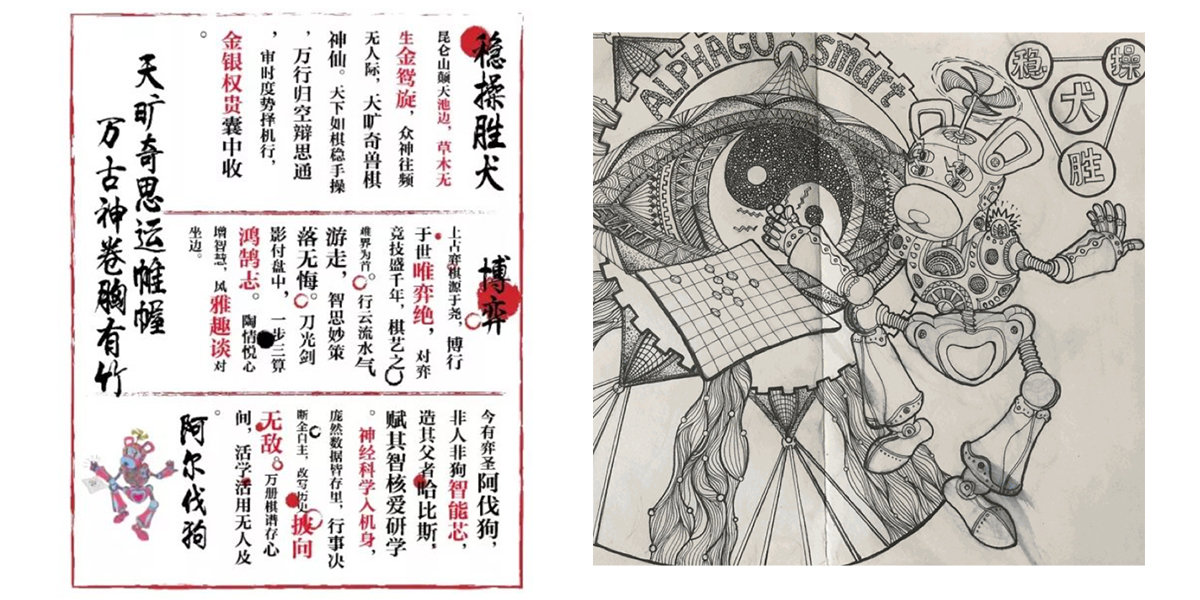 稳操胜犬
昆仑山颠天池边，草木无
生金鸳旋，众神往频
无人际，天旷奇兽棋
神仙。天下如棋稳手操
，万行归空辩思通
，审时度势择机行，
金银权贵囊中收
。
博弈
上古弈棋源于尧，博行
于世唯弈绝，对弈
竞技盛千年，棋艺之
界为首。行云流水气
游走，智思妙策
落无悔。刀光剑
影付盘中，一步三算
鸿鹄志。陶情悦心
增智慧，风雅趣谈对
坐边。
今有弈圣阿伐狗，
非人非狗智能芯，
造其父者哈比斯，
赋其智核爱研学
。神经科学入机身，
庞然数据皆存里，行事决
断全自主，改写历史披向
无敌。万册棋谱存心
间，活学活用无人及
。
阿尔伐狗
天旷奇思运帷幄
万古神卷胸有竹
ALPHAGO smart
稳操
犬
胜